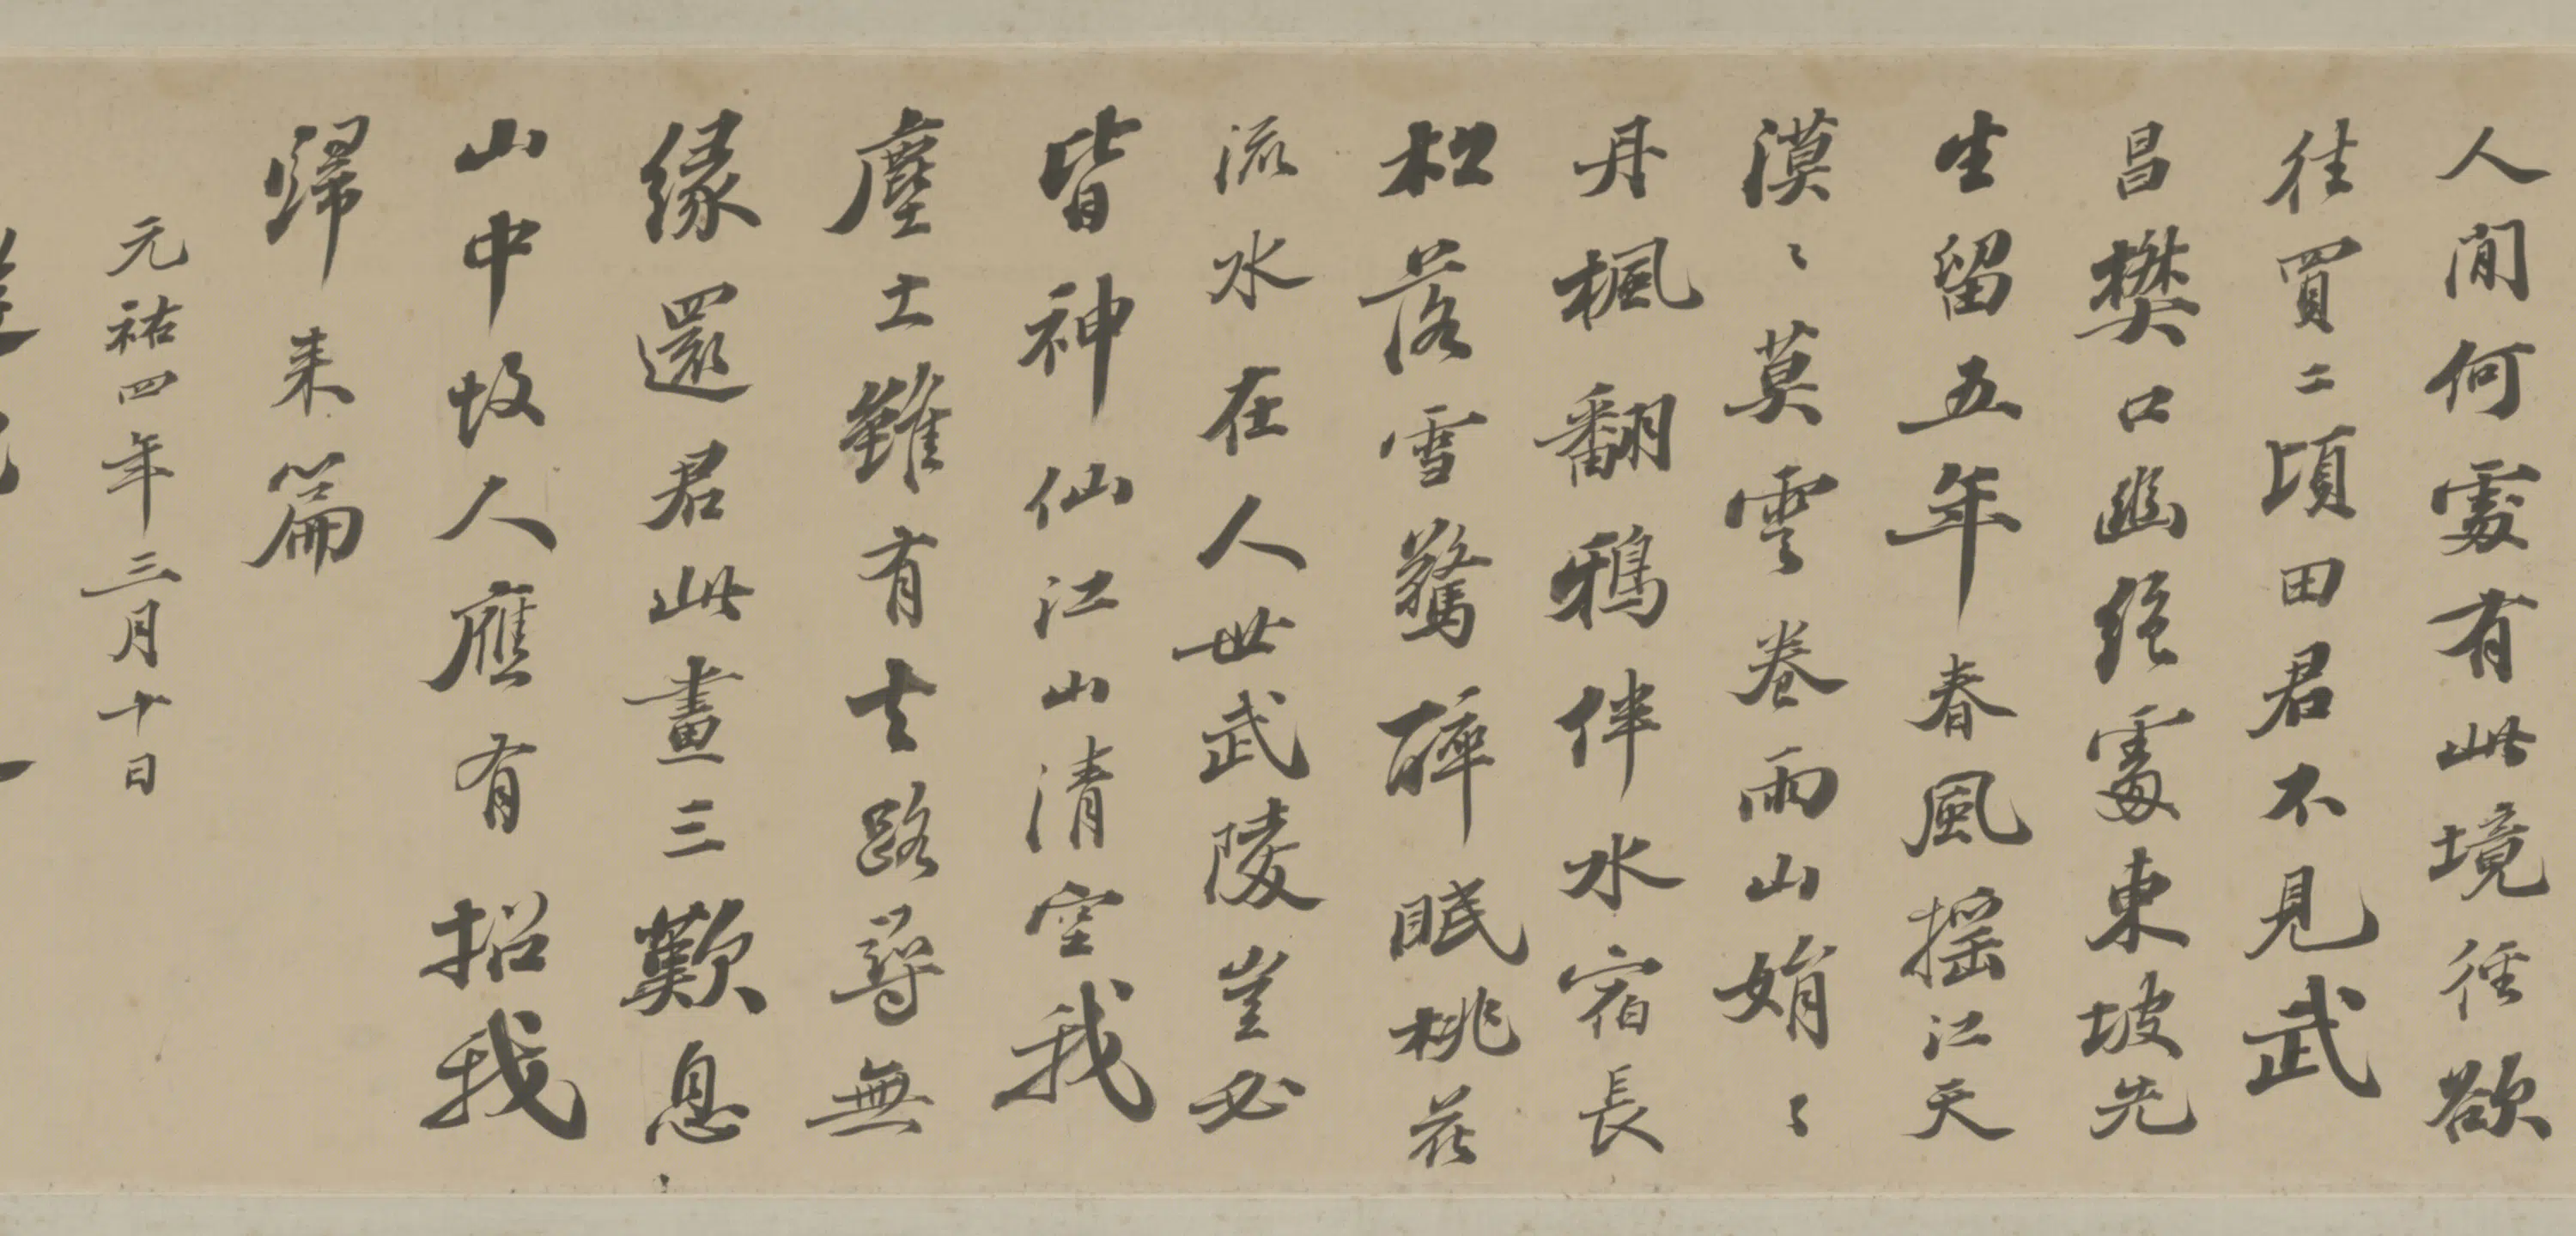 人間何處有此境徑欲
徃買二頃田君不見武
昌樊口幽絶處東坡先
生留五年春風摇江天
漠〻莫雲卷雨山娟〻
丹楓翻鴉伴水宿長
松落雪驚醉眠桃花
流水在人世武陵豈必
皆神仙江山清空我
塵土雖有去路尋無
緣還君此畫三歎息
山中故人應有招我
歸来篇
元祐四年三月十日